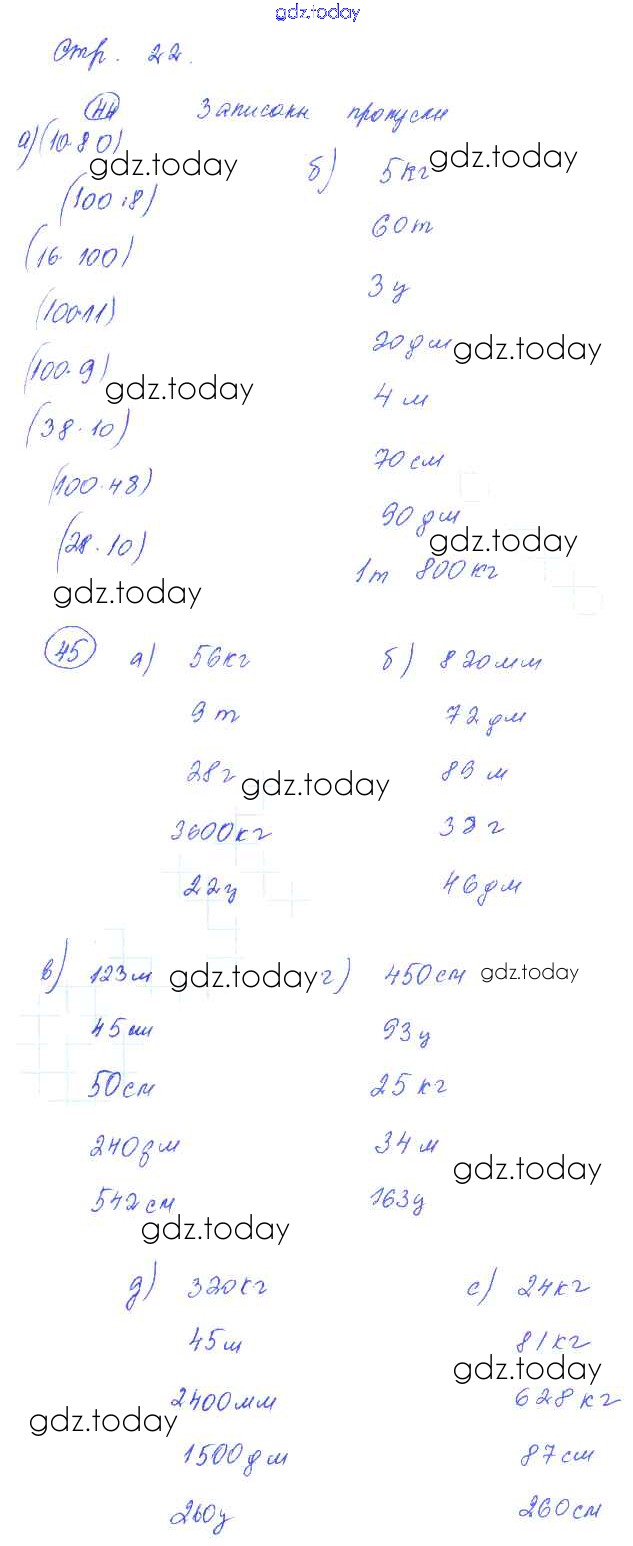 gdz.today
Стр. 22.
44 Записаны пропуски
а) (10·80) gdz.today gdz.today
б) 5кг
(100·8)
60т
(16·100)
3ц
(100·11)
20дм gdz.today
(100·9) gdz.today
4м
(38·10)
70см
(100·48)
90дм
(28·10) gdz.today
1т 800кг
gdz.today
45 а) 56кг б) 820мм
9т 72дм
28г gdz.today 89м
3600кг 38г
22ц 46дм
в) 123м gdz.today г) 450см gdz.today
45 93ц
50см 25кг
240дм 34м
gdz.today
542см 163ц
gdz.today
д) 320кг с) 24кг
45м 81кг
gdz.today
2400мм 628кг
gdz.today
1500дм 87см
260ц 260см